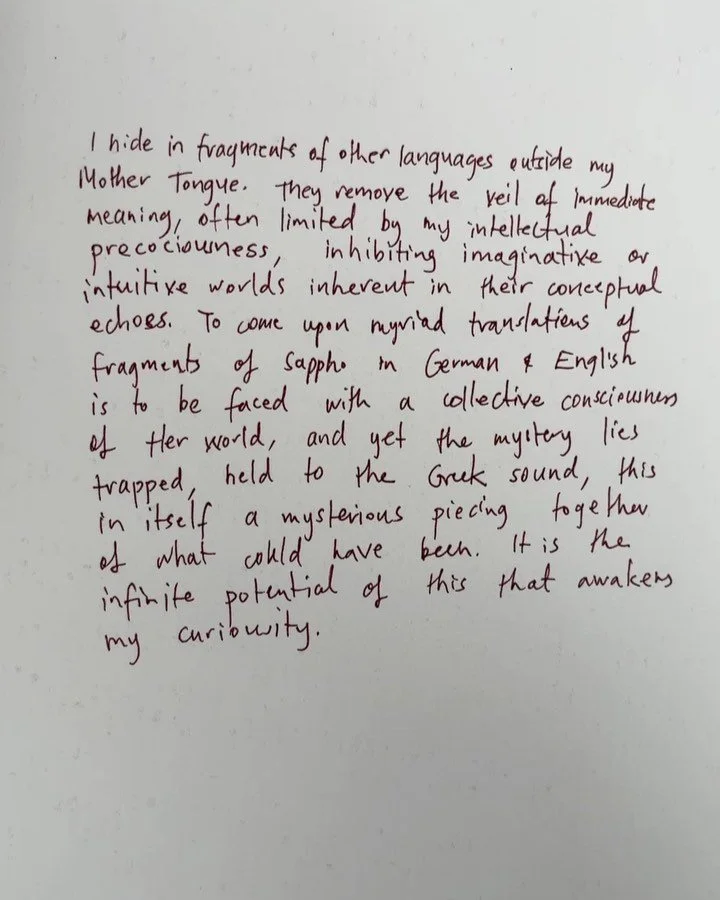 I hide in fragments of other languages outside my
Mother Tongue. They remove the veil of immediate
meaning, often limited by my intellectual
precociousness, inhibiting imaginative or
intuitive worlds inherent in their conceptual
echoes. To come upon myriad translations of
fragments of Sappho in German & English
is to be faced with a collective consciousness
of Her world, and yet the mystery lies
trapped, held to the Greek sound, this
in itself a mysterious piecing together
of what could have been. It is the
infinite potential of this that awakens
my curiousity.